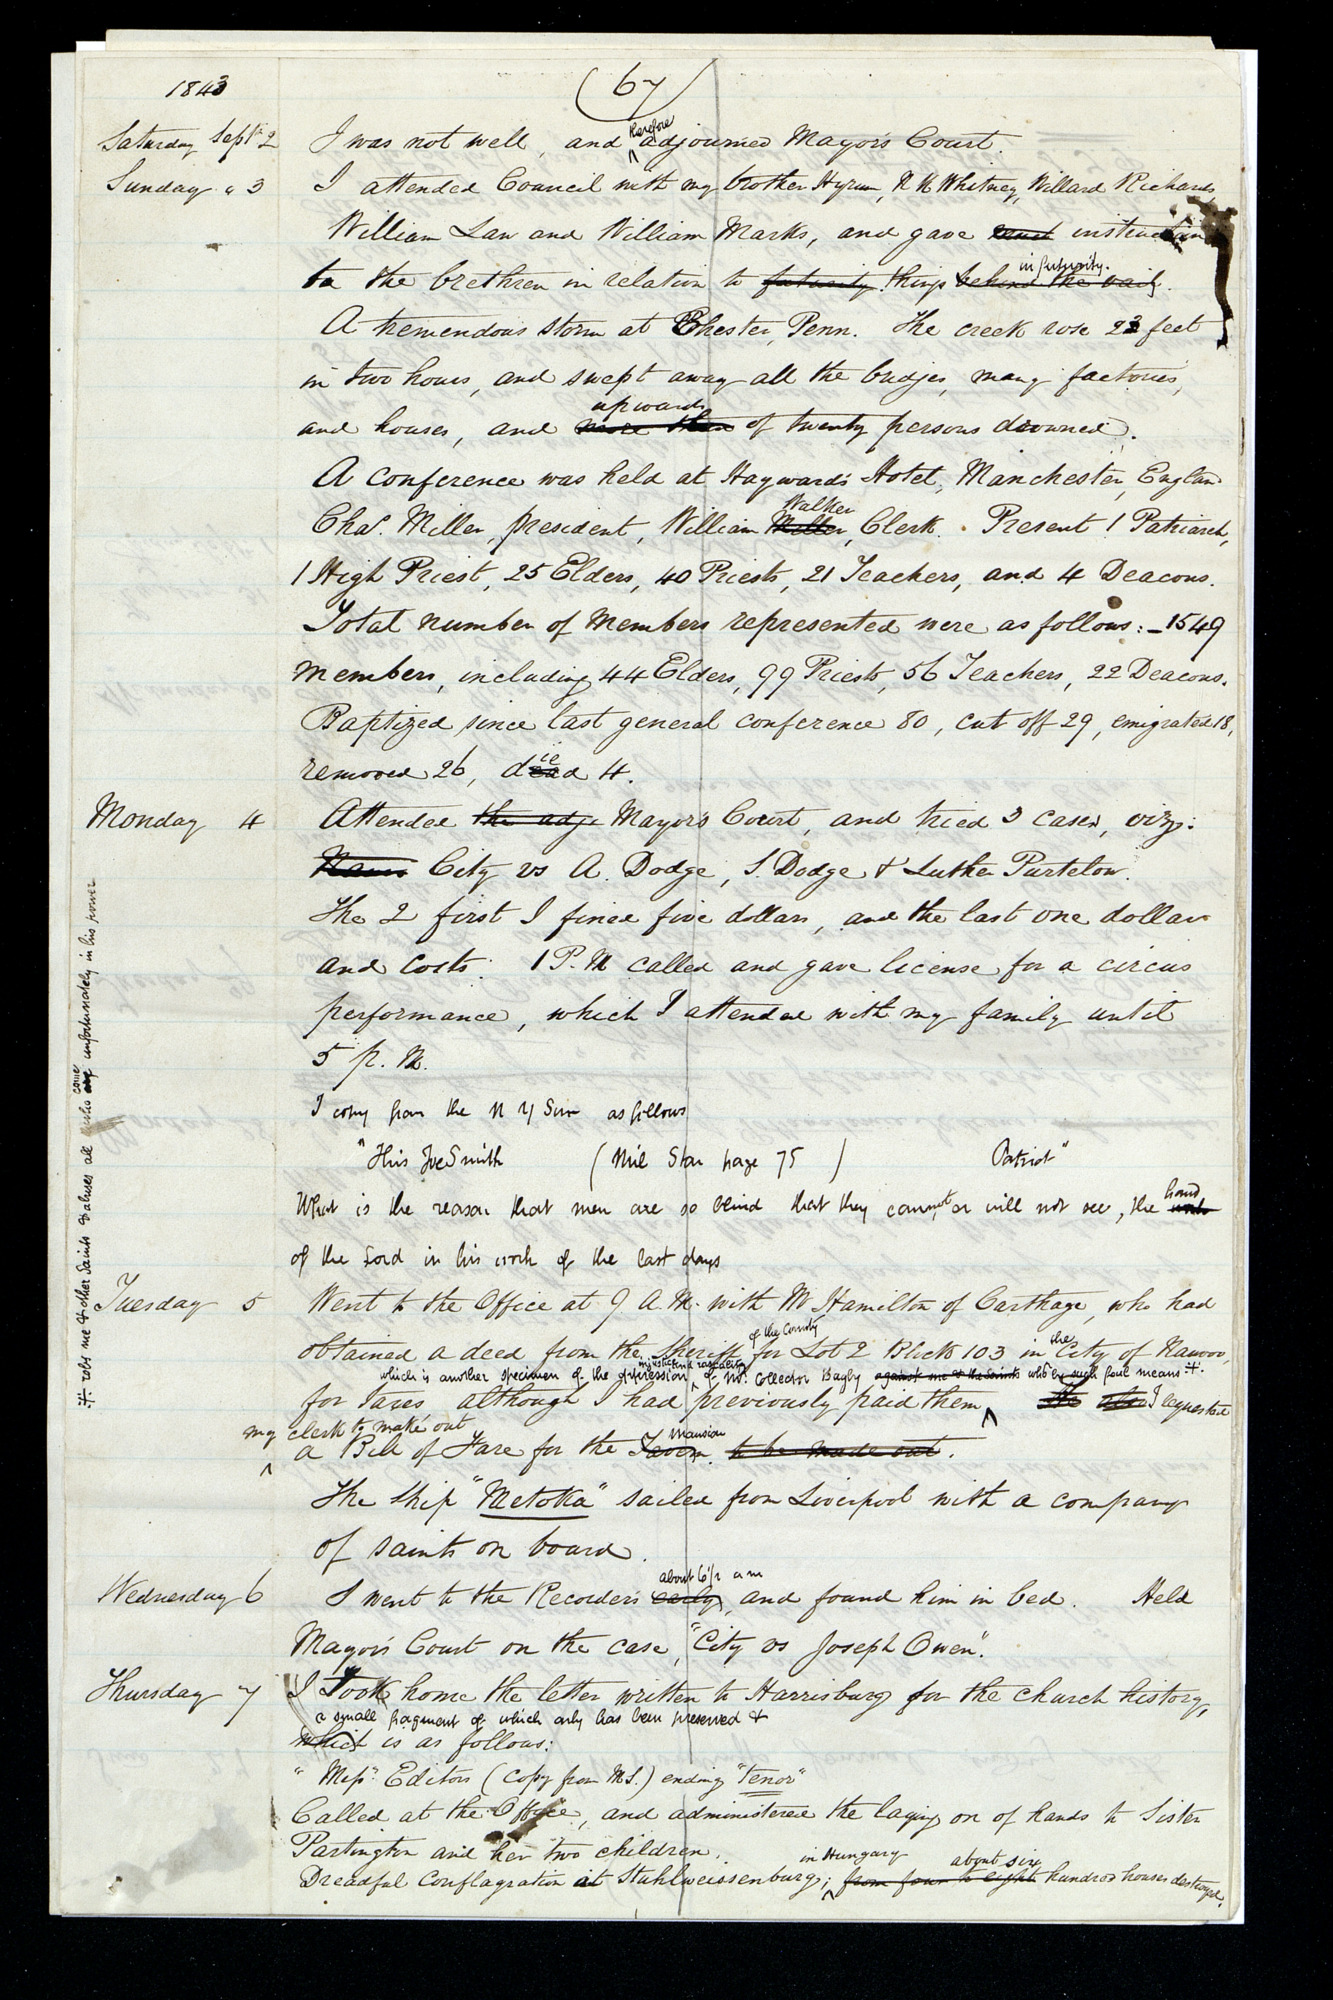 1843
(67)
Saturday Sept 2 I was not well, and therefore adjourned Mayor's Court.
Sunday " 3 I attended Council with my brother Hyrum, N K Whitney, Willard Richards,
William Law and William Marks, and gave instruction
to the brethren in relation to futurity things behind the vail, in futurity.
A tremendous storm at Chester, Penn. The creek rose 23 feet
in two hours, and swept away all the bridges, many factories,
and houses, and more than upwards of twenty persons drowned.
A conference was held at Hayward's Hotel, Manchester, England
Chas. Miller, president, William Miller Walker, Clerk. Present 1 Patriarch,
1 High Priest, 25 Elders, 40 Priests, 21 Teachers, and 4 Deacons.
Total number of members represented were as follows:– 1549
members, including 44 Elders, 99 Priests, 56 Teachers, 22 Deacons.
Baptized since last general conference 80, cut off 29, emigrated 18,
removed 26, died 4.
Monday 4 Attended the adj. Mayor's Court, and tried 3 cases, viz:
City vs A. Dodge, S. Dodge & Luther Purtelow.
The 2 first I fined five dollars, and the last one dollar
and costs. 1 P.M called and gave license for a circus
performance, which I attended with my family until
5 p. M.
I copy from the N Y Sun as follows
"This Joe Smith (Mil Star page 75) Patriot"
What is the reason that men are so blind that they cannot, or will not see, the hand
of the Lord in his work of the last days
Tuesday 5 Went to the Office at 9 A.M. with Mr Hamilton of Carthage, who had
obtained a deed from the Sheriff of the County for Lot 2 Block 103 in the City of Nauvoo,
which is another specimen of the oppression injustice and rascality of Mr. Collector Bagby against me & the Saints who by such foul means #
for taxes although I had previously paid them I requested
my clerk to make out
a Bill of Fare for the Tavern Mansion. to be made out.
The Ship "Metoka" sailed from Liverpool with a company
of saints on board.
Wednesday 6 I went to the Recorder's early about 6 1/2 a m, and found him in bed. Held
Mayor's Court on the case, "City vs Joseph Owen".
Thursday 7 I Took home the letter written to Harrisburg for the church history,
a small fragment of which only has been preserved &
which is as follows:
"Messrs. Editors (copy from M.S.) ending "tenor"
Called at the Office, and administered the laying on of hands to Sister
Partington and her two children.
Dreadful Conflagration at Stuhlweissenburg, in Hungary; from four to eight about six hundred houses destroyed.
# robs me & other Saints & abuses all who are come unfortunately in his power